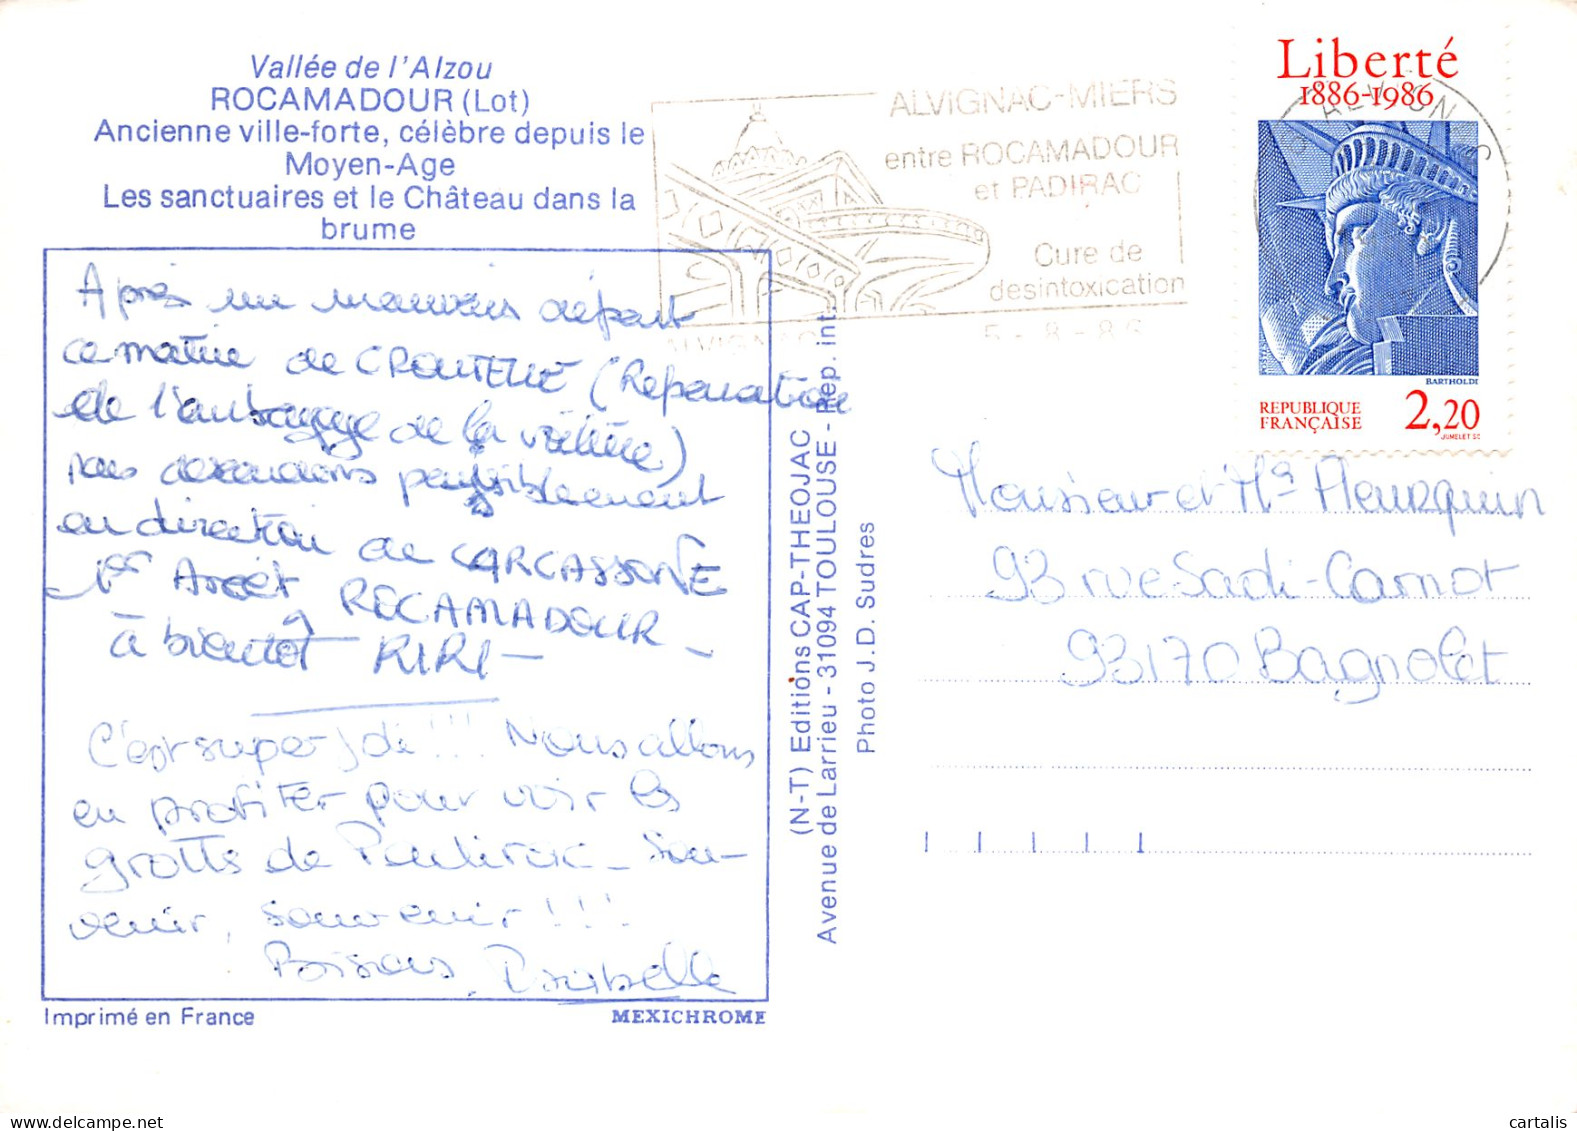 Vallée de l'Alzou
ROCAMADOUR (Lot)
Ancienne ville-forte, célèbre depuis le
Moyen-Age
Les sanctuaires et le Château dans la
brume
Après un mauvais départ
ce matin de CROUTELLE (Reparation
de l'embrayage de la voiture)
nous descendons paisiblement
en direction de CARCASSONNE
1er Arrêt à ROCAMADOUR -
à bientôt RIRI -
C'est super joli !!! Nous allons
en profiter pour voir les
grottes de Padirac - Sou-
venir, souvenir !!!
Bisous,
Imprimé en France
MEXICHROME
(N-T) Editions CAP-THEOJAC
Avenue de Larrieu - 31094 TOULOUSE - Rep. int.
Photo J.D. Sudres
ALVIGNAC-MIERS
entre ROCAMADOUR
et PADIRAC
Cure de
desintoxication
ALVIGNAC 5-8-86
Liberté
1886-1986
BARTHOLDI
REPUBLIQUE
FRANÇAISE
2,20
JUMELET SC
ALVIGNAC
Monsieur et Me Fleurquin
93 rue Sadi-Carnot
93170 Bagnolet
cartalis